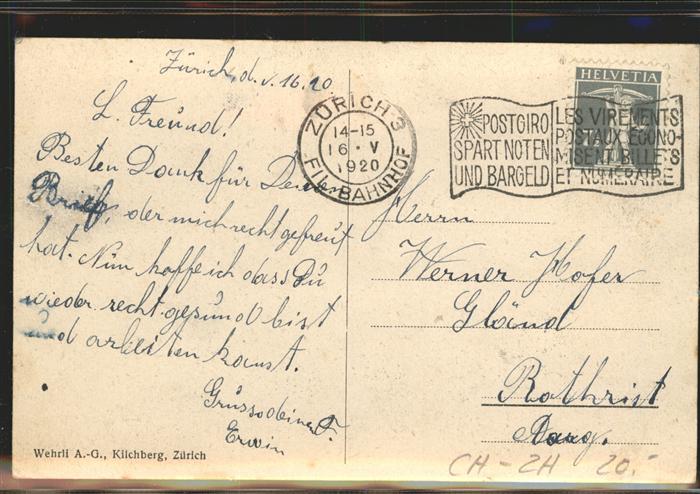 Zürich, d. v. 16. 20
L. Freund!
Besten Dank für Deinen
Brief, der mich recht gefreut
hat. Nun hoffe ich dass Du
wieder recht gesund bist
und arbeiten kanst.
Grüsse deiner F.
Erwin
Wehrli A.-G., Kilchberg, Zürich
ZÜRICH 3
14-15
16·V
1920
FIL. BAHNHOF
POSTGIRO
SPART NOTEN
UND BARGELD
LES VIREMENTS
POSTAUX ÉCONO-
MISENT BILLETS
ET NUMÉRAIRE
HELVETIA
Herrn
Werner Hofer
Gländ
Rothrist
Aarg.
CH-ZH 20.-